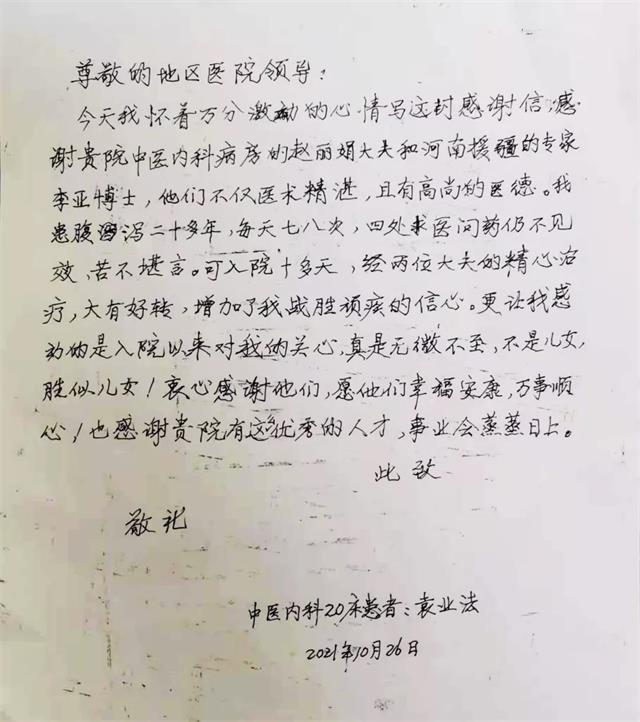 尊敬的地区医院领导：
今天我怀着万分激动的心情写这封感谢信，感
谢贵院中医内科病房的赵丽娟大夫和河南援疆的专家
李亚博士，他们不仅医术精湛，且有高尚的医德。我
患腹泻二十多年，每天七八次，四处求医问药仍不见
效，苦不堪言。可入院十多天，经两位大夫的精心治
疗，大有好转，增加了我战胜顽疾的信心。更让我感
动的是入院以来对我的关心，真是无微不至，不是儿女，
胜似儿女！衷心感谢他们，愿他们幸福安康，万事顺
心！也感谢贵院有这优秀的人才，事业会蒸蒸日上。
此致
敬礼
中医内科20床患者：袁业法
2021年10月26日